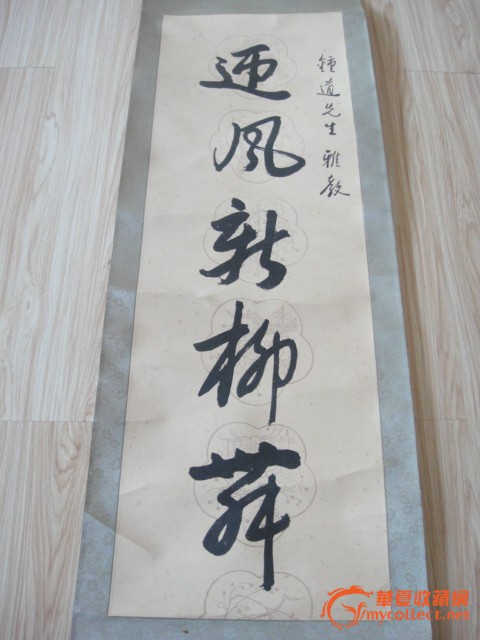 鍾道先生雅教
迎风新柳舞
華夏收藏網
mycollect.net